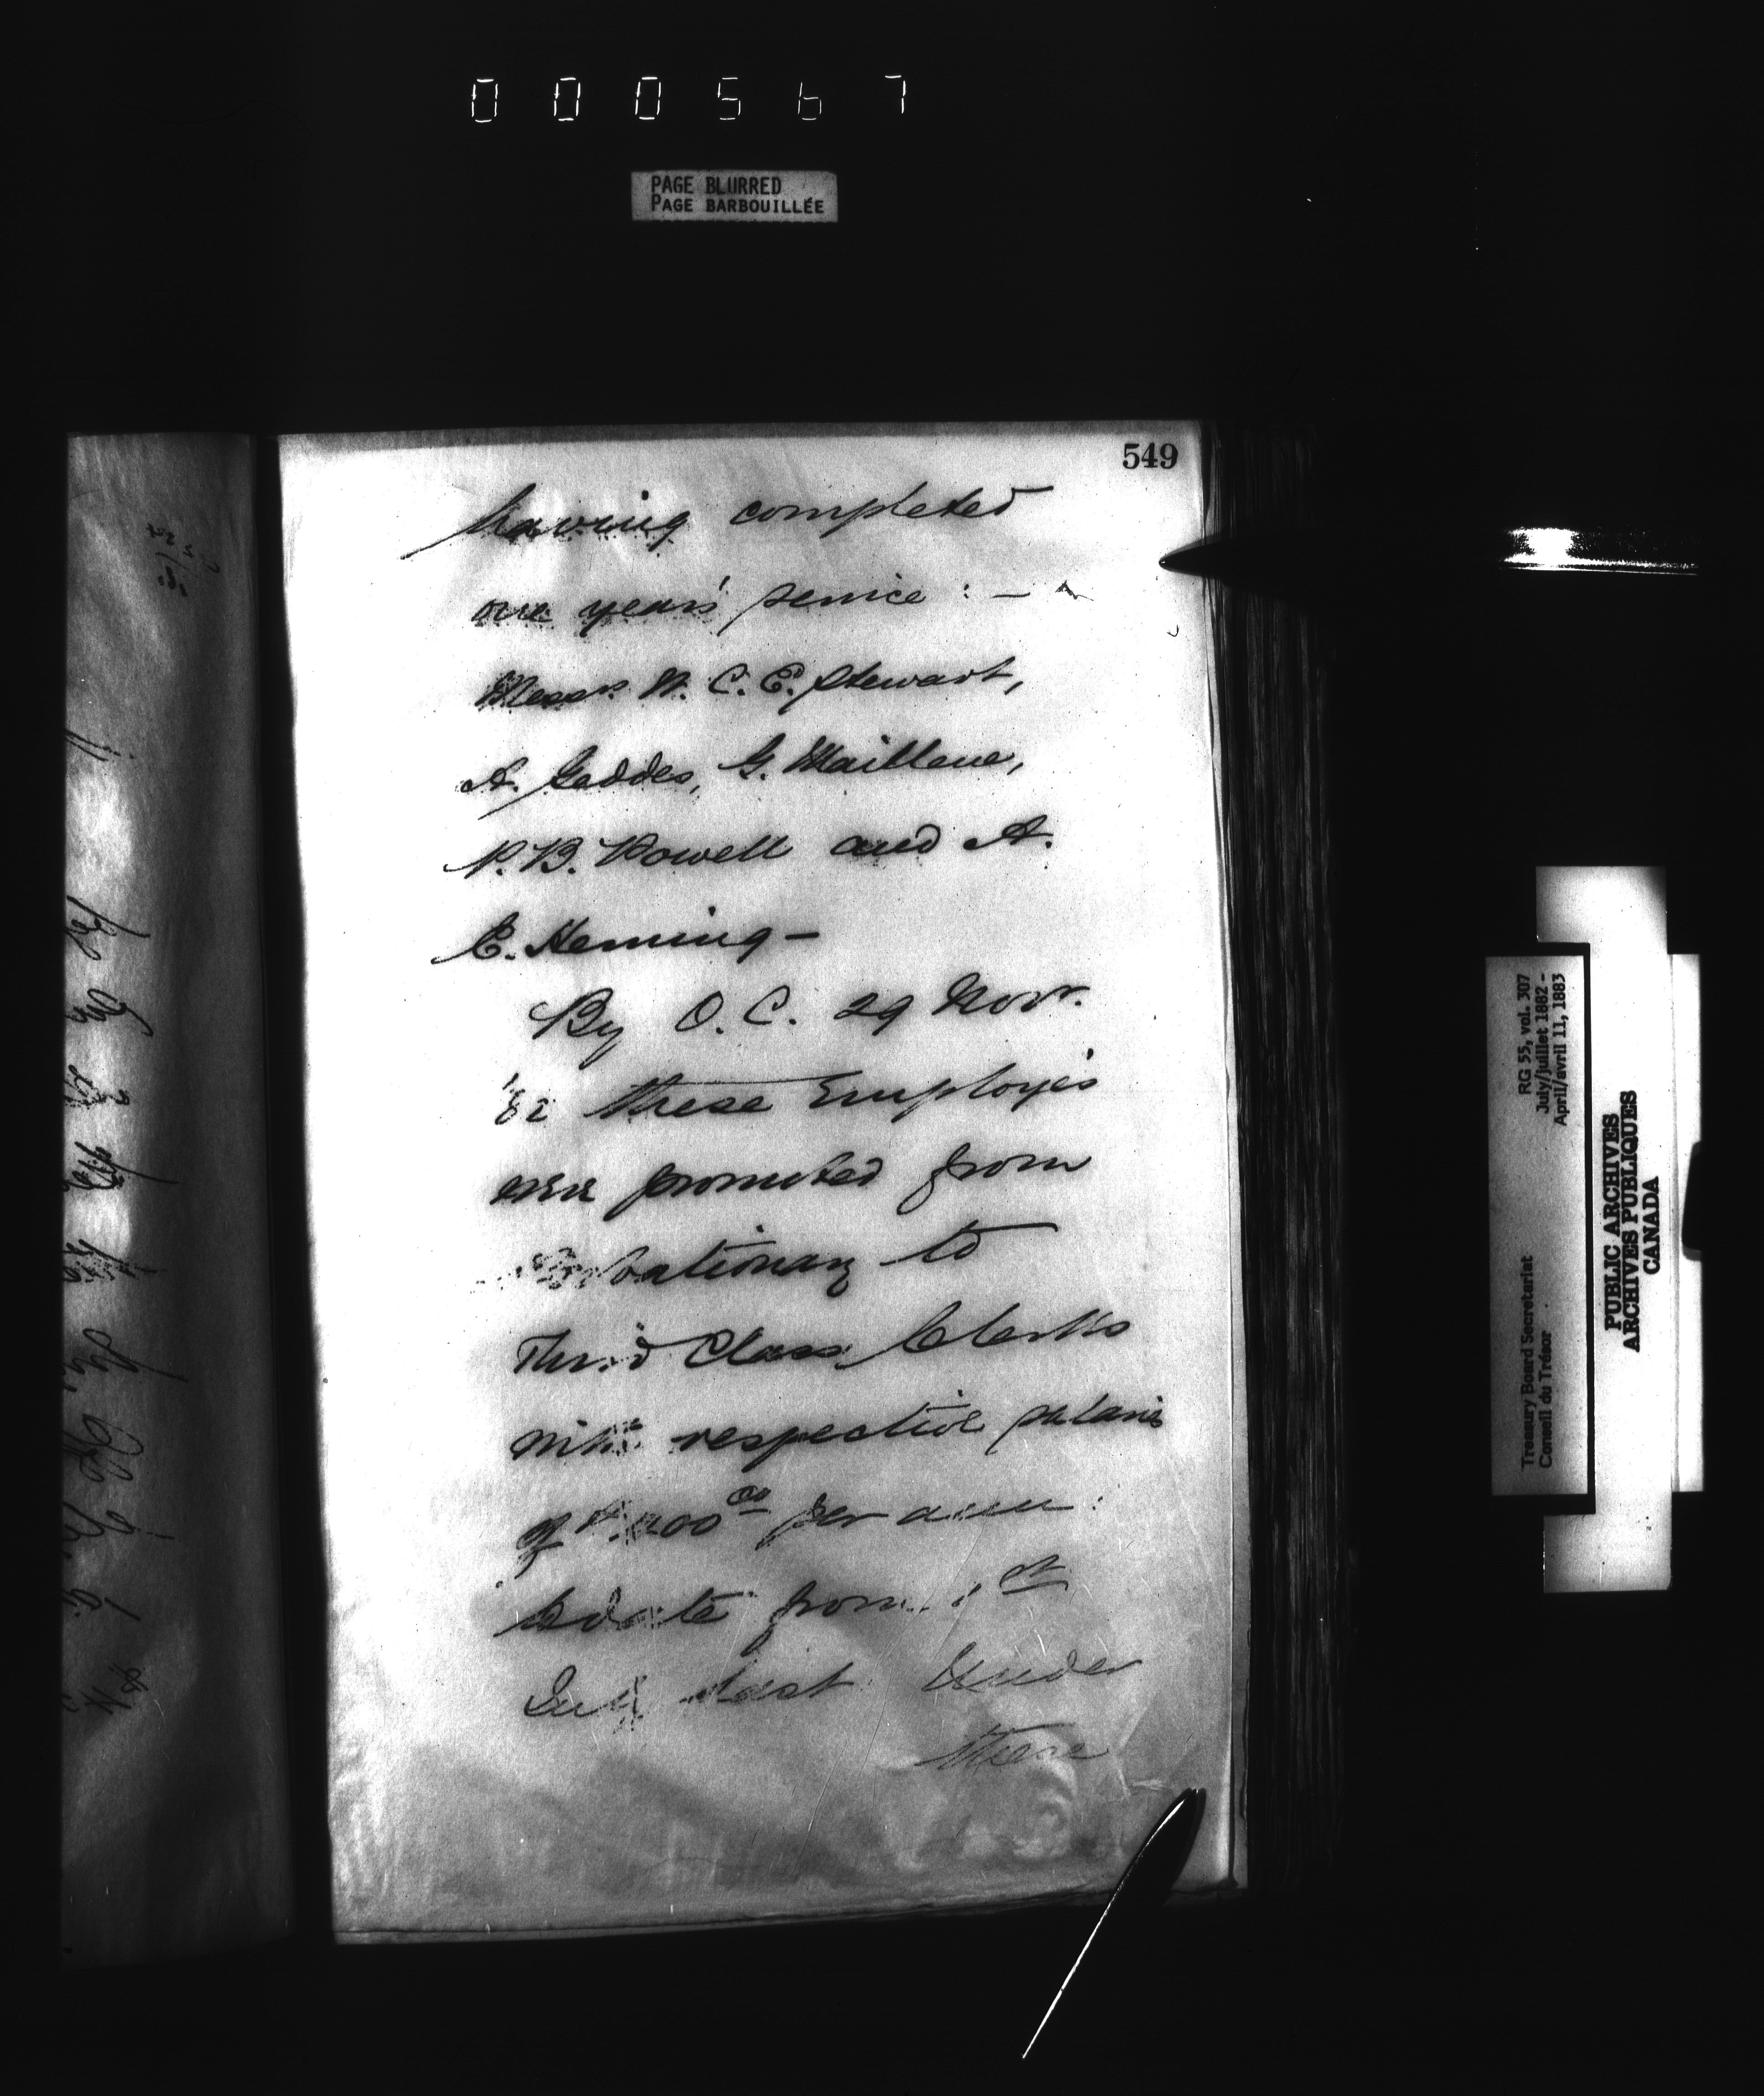 000567
PAGE BLURRED
PAGE BARBOUILLÉE
549
having completed
one year's service : —
Messrs. W. C. E. Stewart,
A. Geddes, G. Mailleue,
P. B. Powell and A.
E. Heming —
By O. C. 29 Novr.
'82 these Employés
were promoted from
Probationary to
Third Class Clerks
with respective salaries
of 400 00 per
to date from 1st
July last Under
these
RG 55, vol. 307
July/juillet 1882 -
April/avril 11, 1883
Treasury Board Secretariat
Conseil du Trésor
PUBLIC ARCHIVES
ARCHIVES PUBLIQUES
CANADA